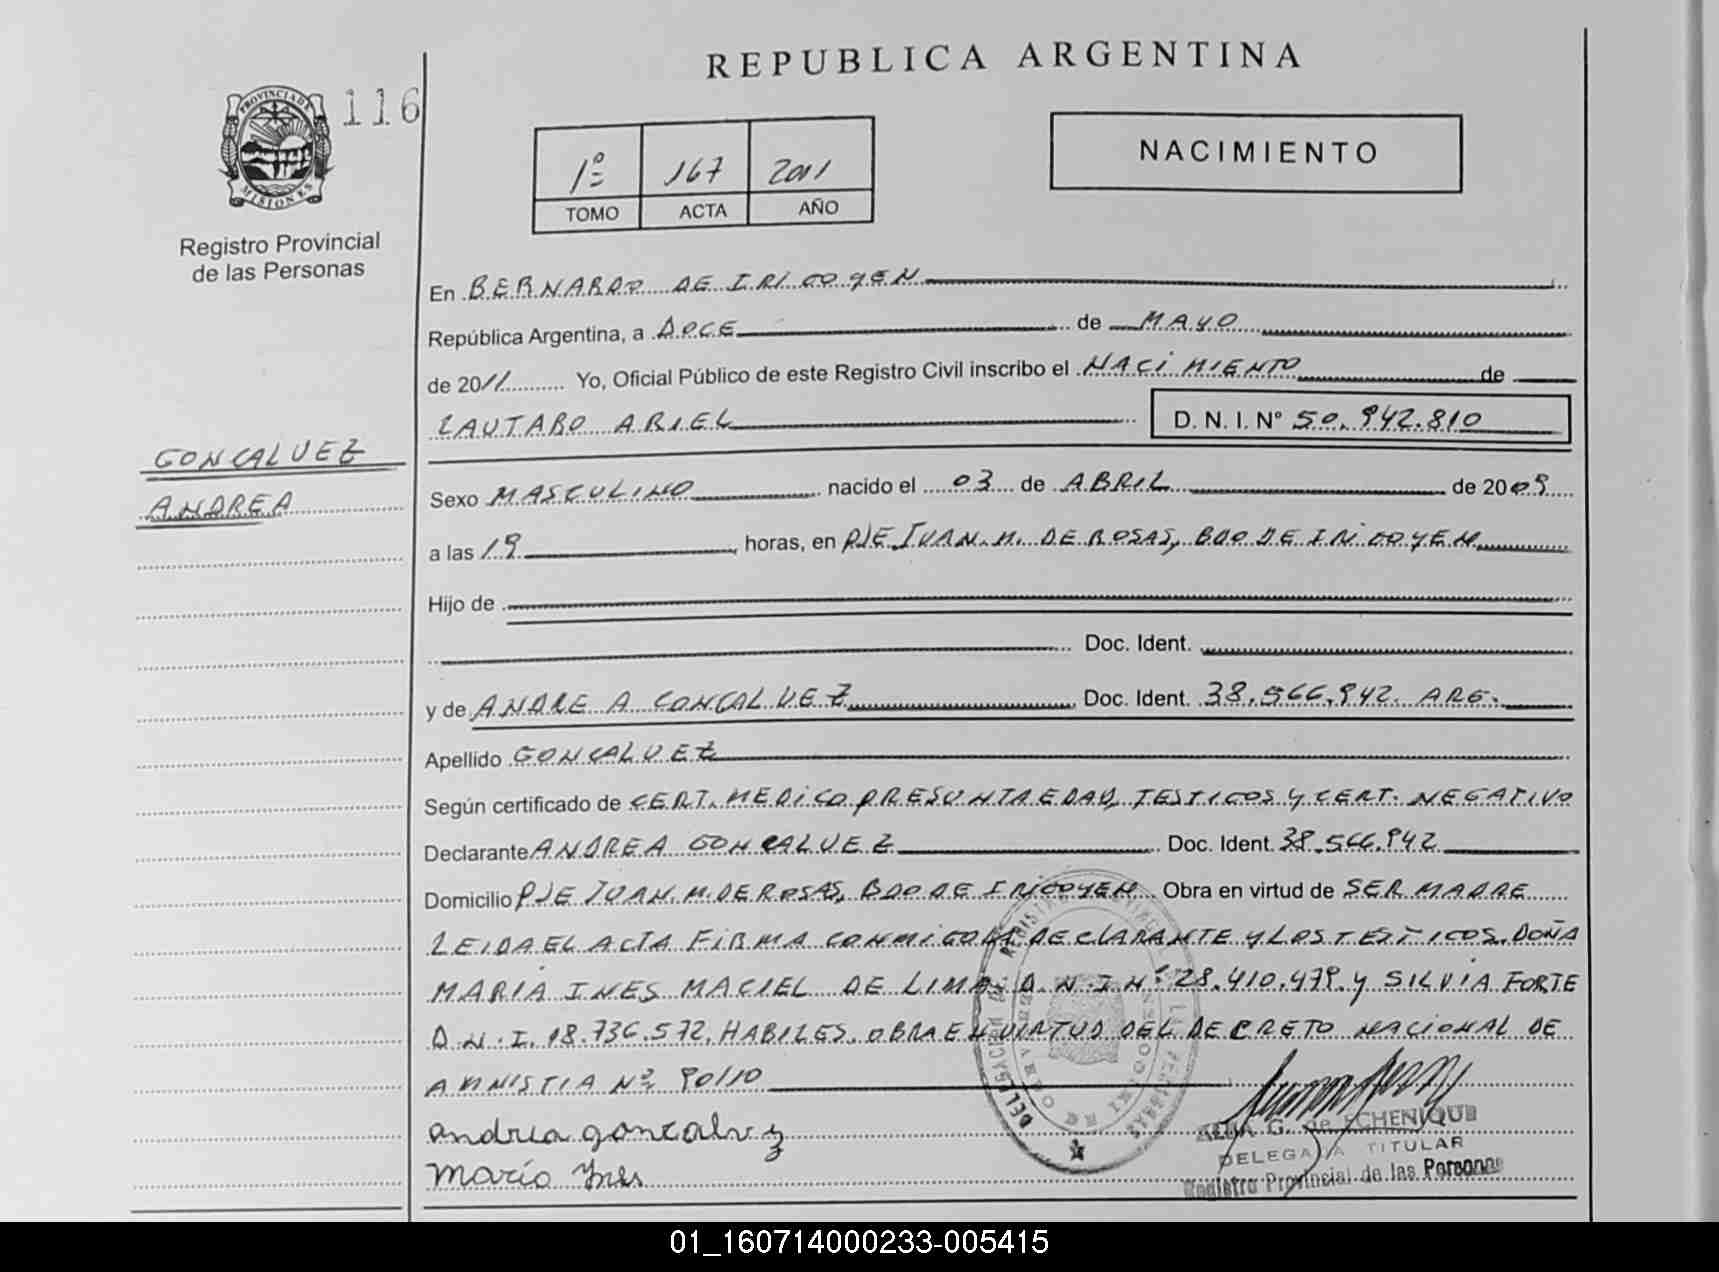 REPUBLICA ARGENTINA
116
PROVINCIA DE
MISIONES
Registro Provincial
de las Personas
1º 167 2011
TOMO ACTA AÑO
NACIMIENTO
En BERNARDO DE IRIGOYEN
República Argentina, a DOCE de MAYO
de 2011 Yo, Oficial Público de este Registro Civil inscribo el NACIMIENTO de
LAUTARO ARIEL D. N. I. Nº 50.942.810
GONCALVEZ
ANDREA
Sexo MASCULINO nacido el 03 de ABRIL de 2009
a las 19 horas, en PJE JUAN. M. DE ROSAS, BDO DE IRIGOYEN
Hijo de
Doc. Ident.
y de ANDREA GONCALVEZ Doc. Ident. 38.566.942. ARG.
Apellido GONCALVEZ
Según certificado de CERT. MEDICO PRESUNTA EDAD, TESTIGOS Y CERT. NEGATIVO
Declarante ANDREA GONCALVEZ Doc. Ident. 38.566.942
Domicilio PJE JUAN. M. DE ROSAS, BDO DE IRIGOYEN Obra en virtud de SER MADRE
LEIDA EL ACTA FIRMA CONMIGO LA DECLARANTE Y LOS TESTIGOS. DOÑA
MARIA INES MACIEL DE LIMA D.N.I Nº 28.410.479. Y SILVIA FORTE
D.N.I. 18.736.572. HABILES. OBRA EN VIRTUD DEL DECRETO NACIONAL DE
AMNISTIA Nº 90/10
andrea goncalvez
Maria Ines
ALBA G. de ECHENIQUE
DELEGADA TITULAR
Registro Provincial de las Personas
01_160714000233-005415